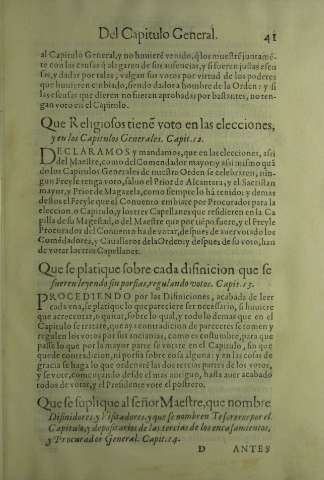 Del Capitulo General. 41
al Capitulo General, y no huuieré venido, q̃ los muestré juntamé-
te con las causas q̃ alegaren de sus ausencias, y si fueren justas
y dadas por tales, valgan sus votos por virtud de los poderes
que huuieren embiado, siendo dados a hombre de la Orden: y si
las escusas que dieren no fueren aprobadas por bastantes, no ten-
gan voto en el Capitulo.
Que Religiosos tienē voto en las elecciones,
y en los Capitulos Generales. Capit. 12.
DECLARAMOS y mandamos, que en las elecciones, assi
del Maestre, como del Comendador mayor: y assi mismo quā
do los Capitulos Generales de nuestra Orden se celebraren, nin-
gun Freyle tenga voto, saluo el Prior de Alcantara, y el Sacristan
mayor, y Prior de Magazela, como siempre lo ha tenido: y demas
destos el Freyle que el Conuento embiare por Procurador para la
eleccion, o Capitulo, y los tres Capellanes que residieren en la Ca
pilla de su Magestad, o del Maestre que por tiēpo fuere, y el Freyle
Procurador del Conuento ha de votar, despues de auer votado los
Comēdadores, y Caualleros de la Orden: y despues de su voto, han
de votar los tres Capellanes.
Que se platique sobre cada difinicion que se
fueren leyendo sin porfias, regulando votos. Capit. 13.
PROCEDIENDO por las Difiniciones, acabada de leer
cada vna, se platique lo que pareciere ser necessario, si huuiere
que acrecentar, o quitar, sobre lo qual, y todo lo demas que en el
Capitulo se tratare, que aya contradicion de pareceres se tomen y
regulen los votos por sus ancianias, como es costumbre, para que
passe lo que por la mayor parte se votare en el Capitulo, sin que
quede contradicion, ni porfia sobre cosa alguna: y en las cosas de
gracia se haga lo que ordenaré las dos tercias partes de los votos,
y se vote, començando desde el mas antiguo, hasta auer acabado
todos de votar, y el Presidente vote el postrero.
Que se suplique al señor Maestre, que nombre
Difinidores, y Visitadores, y que se nombren Tesoreros por el
Capitulo, y depositarios de las tercias de los encasamientos,
y Procurador General. Capit. 14.
D ANTES